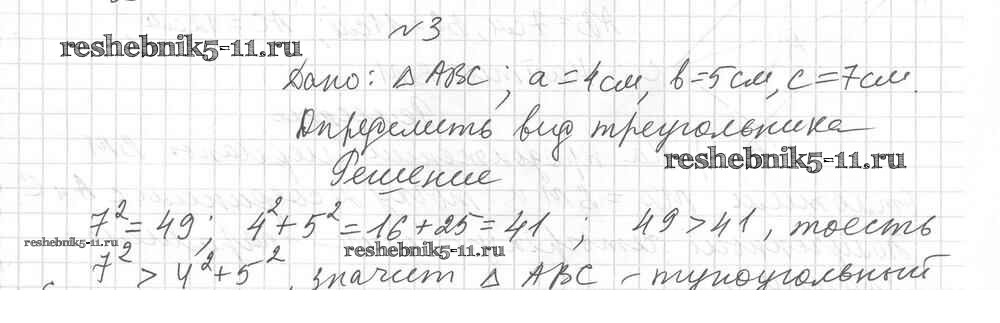 №3
reshebnik5-11.ru
Дано: △ ABC; a=4см, b=5см, c=7см.
Определить вид треугольника
reshebnik5-11.ru
Решение
7²=49; 4²+5²=16+25=41; 49>41, тоесть
reshebnik5-11.ru reshebnik5-11.ru
7²>4²+5², значит △ ABC – тупоугольный